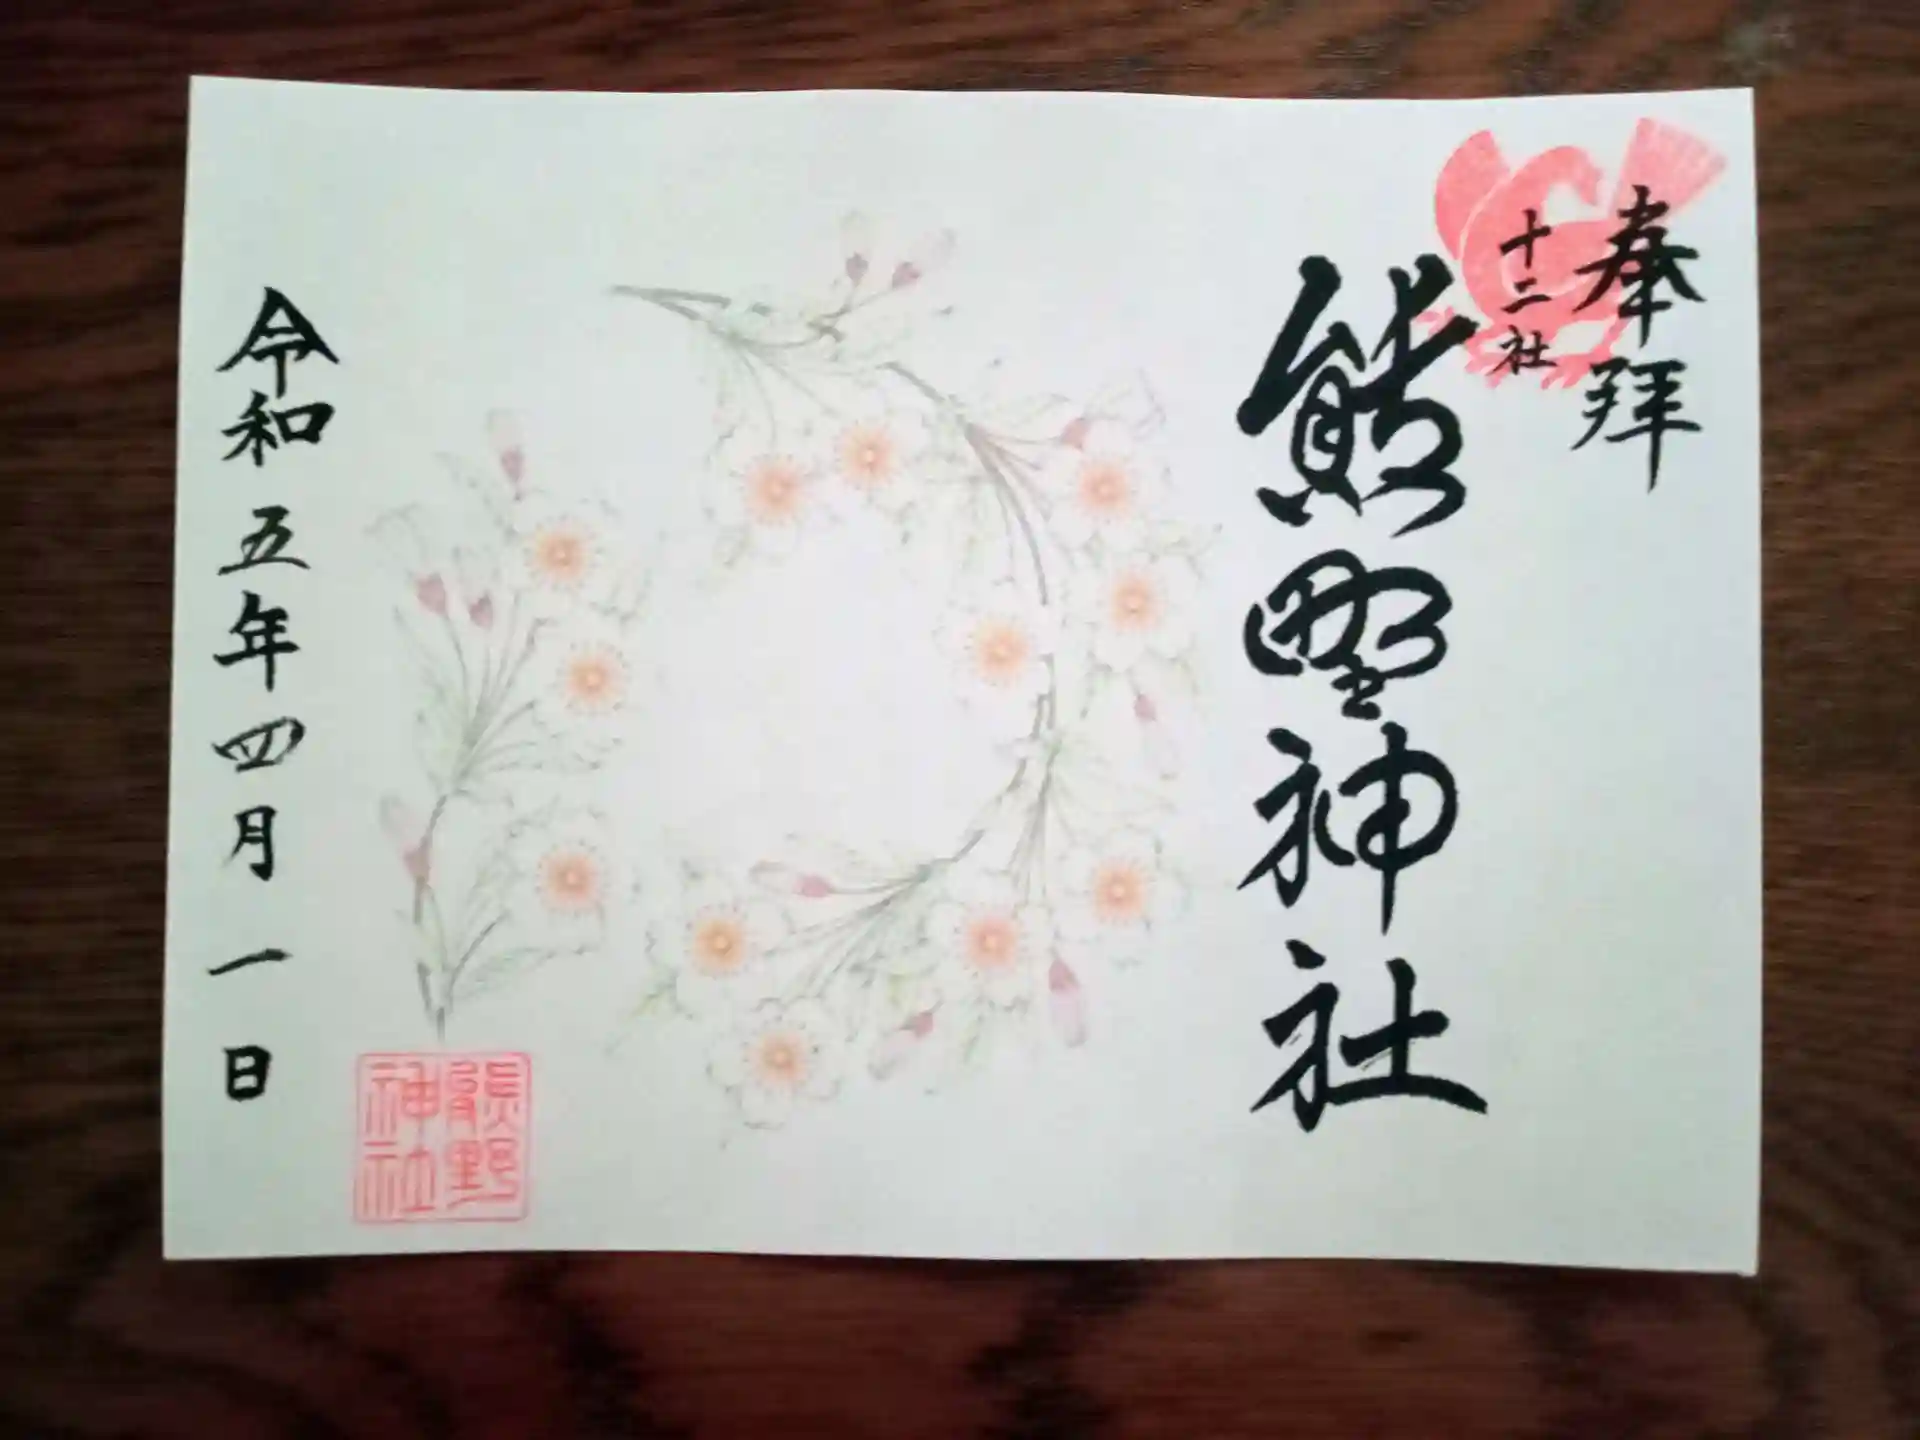 奉拝
十二社
熊野神社
令和五年四月一日
熊野
神社